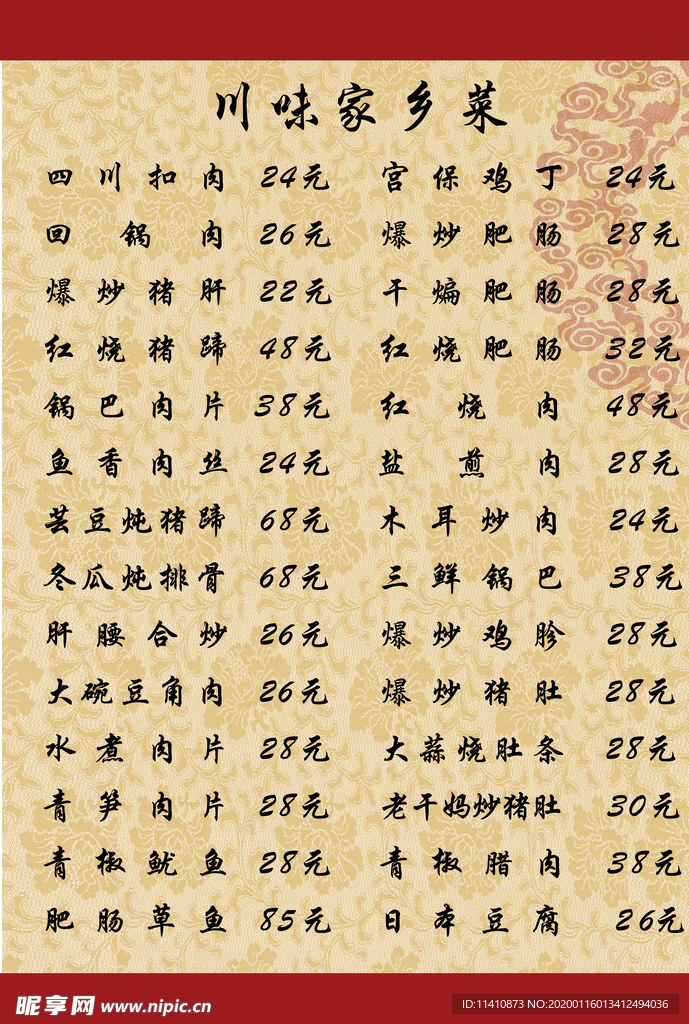 川味家乡菜
四川扣肉 24元 宫保鸡丁 24元
回锅肉 26元 爆炒肥肠 28元
爆炒猪肝 22元 干煸肥肠 28元
红烧猪蹄 48元 红烧肥肠 32元
锅巴肉片 38元 红烧肉 48元
鱼香肉丝 24元 盐煎肉 28元
芸豆炖猪蹄 68元 木耳炒肉 24元
冬瓜炖排骨 68元 三鲜锅巴 38元
肝腰合炒 26元 爆炒鸡胗 28元
大碗豆角肉 26元 爆炒猪肚 28元
水煮肉片 28元 大蒜烧肚条 28元
青笋肉片 28元 老干妈炒猪肚 30元
青椒鱿鱼 28元 青椒腊肉 38元
肥肠草鱼 85元 日本豆腐 26元
昵享网 www.nipic.cn
ID:11410873 NO:20200116013412494036